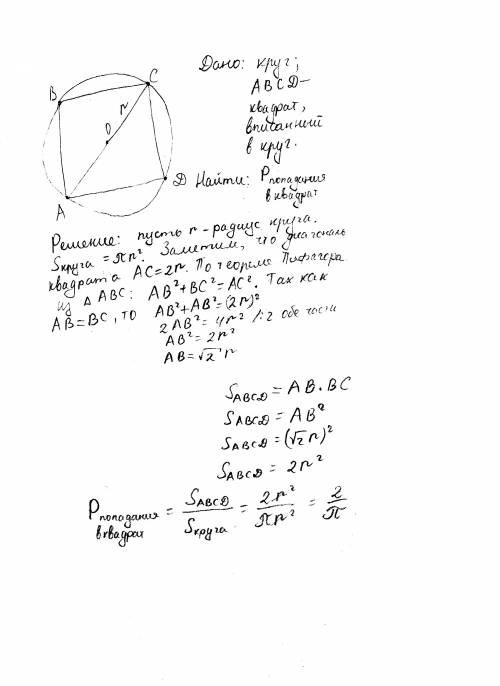 Дано: круг;
ABCD –
квадрат,
вписанный
в круг.
B
C
r
O
A
D
Найти: Pпопадания
в квадрат
Решение: пусть r - радиус круга.
Sкруга = πr². Заметим, что диагональ
квадрата AC=2r. По теореме Пифагора
из △ABC: AB²+BC²=AC². Так как
AB=BC, то AB²+AB²=(2r)²
2AB²=4r² /:2 обе части
AB²=2r²
AB=√2 r
SABCD = AB·BC
SABCD = AB²
SABCD = (√2 r)²
SABCD = 2r²
Pпопадания в квадрат = SABCD / Sкруга = 2r² / πr² = 2 / π